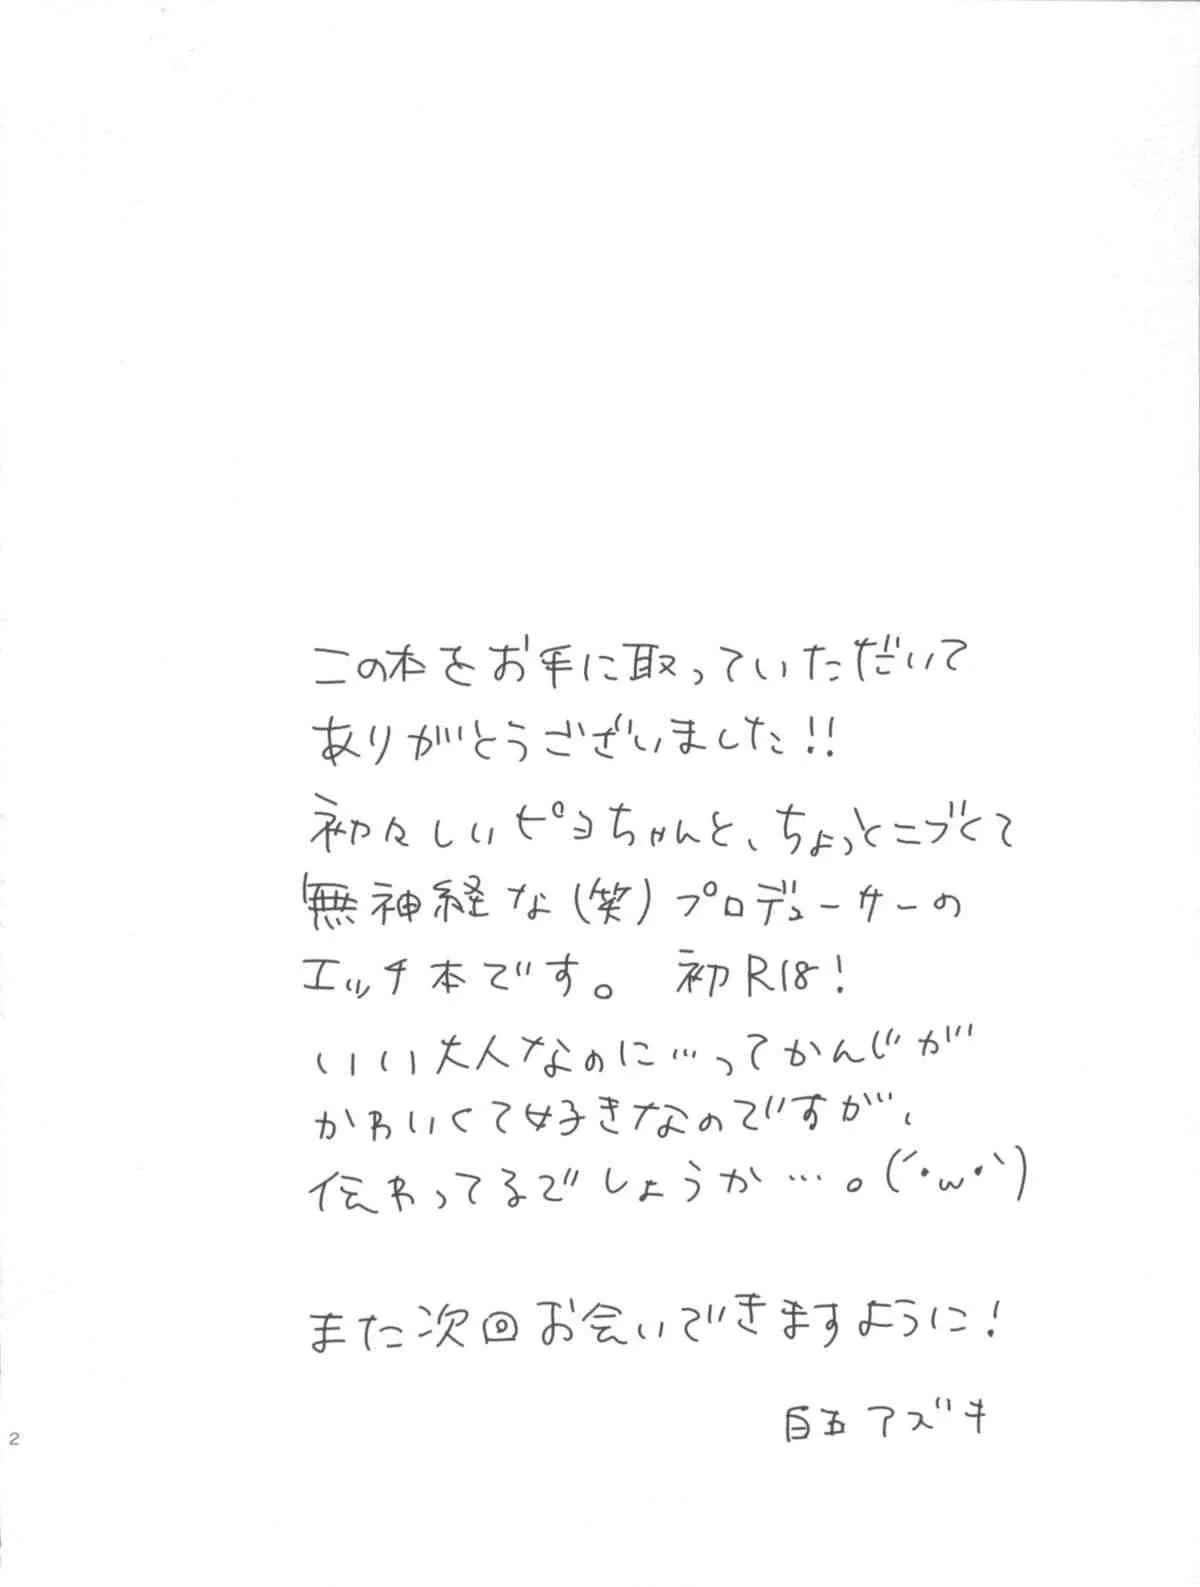 この本をお手に取っていただいて
ありがとうございました!!
初々しいピヨちゃんと、ちょっとこづくて
無神経な(笑)プロデューサーの
エッチ本です。 初R18!
いい大人なのに…ってかんじが
かわいくて好きなのですが、
伝わってるでしょうか…。(´・ω・`)
また次回お会いできますように!
白玉アズキ
2